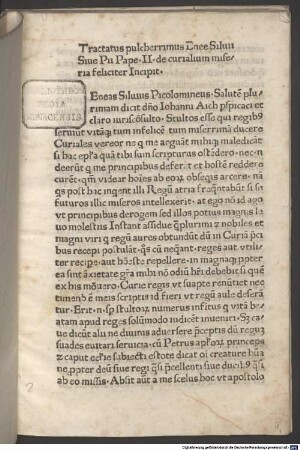 Tractatus pulcherrimus Enee Siluii
Siue Pii Pape .II. de curialium mise/
ria feliciter Incipit.
Eneas Siluius Picolomineus. Salutē plu/
rimam dicit dño Iohanni Aich pspicaci et
claro iurisɔsulto. Stultos esse qui regibꝫ
seruiūt vitāqꝫ tum infelicē tum miserrimā ducere
Curiales vereor ne q̄ me arguāt mihiqꝫ maledicāt
si hac epła quā tibi sum scripturus ostēdero. nec .n̄
deerūt q̄ me principibus deferāt et hostē reddere
curēt. qm̄ videar hoīes ab eoꝝ obseqis arcere. nā
qs post hac ingenti illi Regū atria freq̄ntabūt si se
futuros illic miseros intellexerit. at ego nō id ago
vt principibus derogem sed illos potius magnis le
uo molestiis Instant assidue q̄plurimi ⁊ nobiles et
magni viri q regū aures obtundūt dū in Curiā p̄ci
bus recepi postulāt. qs cū neqāt. reges aut vtili/
ter recipe. aut hōeste repellere. in magnaqꝫ ppter
ea sint āxietate gr̄a mihi nō odiū hr̄i debebit si quē
ex his mōuero. Curie regis vt suapte renūtiet nec
timendū ē meis scriptis id fieri vt regū aule deserā
tur. Erit .n. sp stultoꝝ numerus infitus q vitā be/
atam apud reges solūmodo iudicēt inueniri. Sꝫ ca/
ue dicūt alii ne diuinis aduersere p̄ceptis dū regū
suades euitari seruicia. cū Petrus apłoꝝ princeps
⁊ caput eccłie subiecti estote dicat oī creature hūa
ne ppter deū siue regi q̄si p̄cellenti siue duciꝫ q̄si
ab eo missis. Absit aūt a me scelus hoc vt apostolo